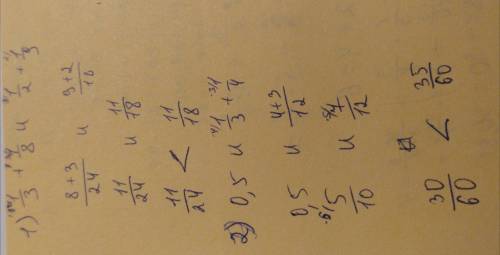 1) 1/3 + 1/8 и 1/2 + 1/3
8+3/24 и 3+2/18
11/24 и 11/18
11/24 < 11/18
2) 0,5 и 1/3 + 1/4
0,5 и 4+3/12
5/10 и 7/12
30/60 < 35/60